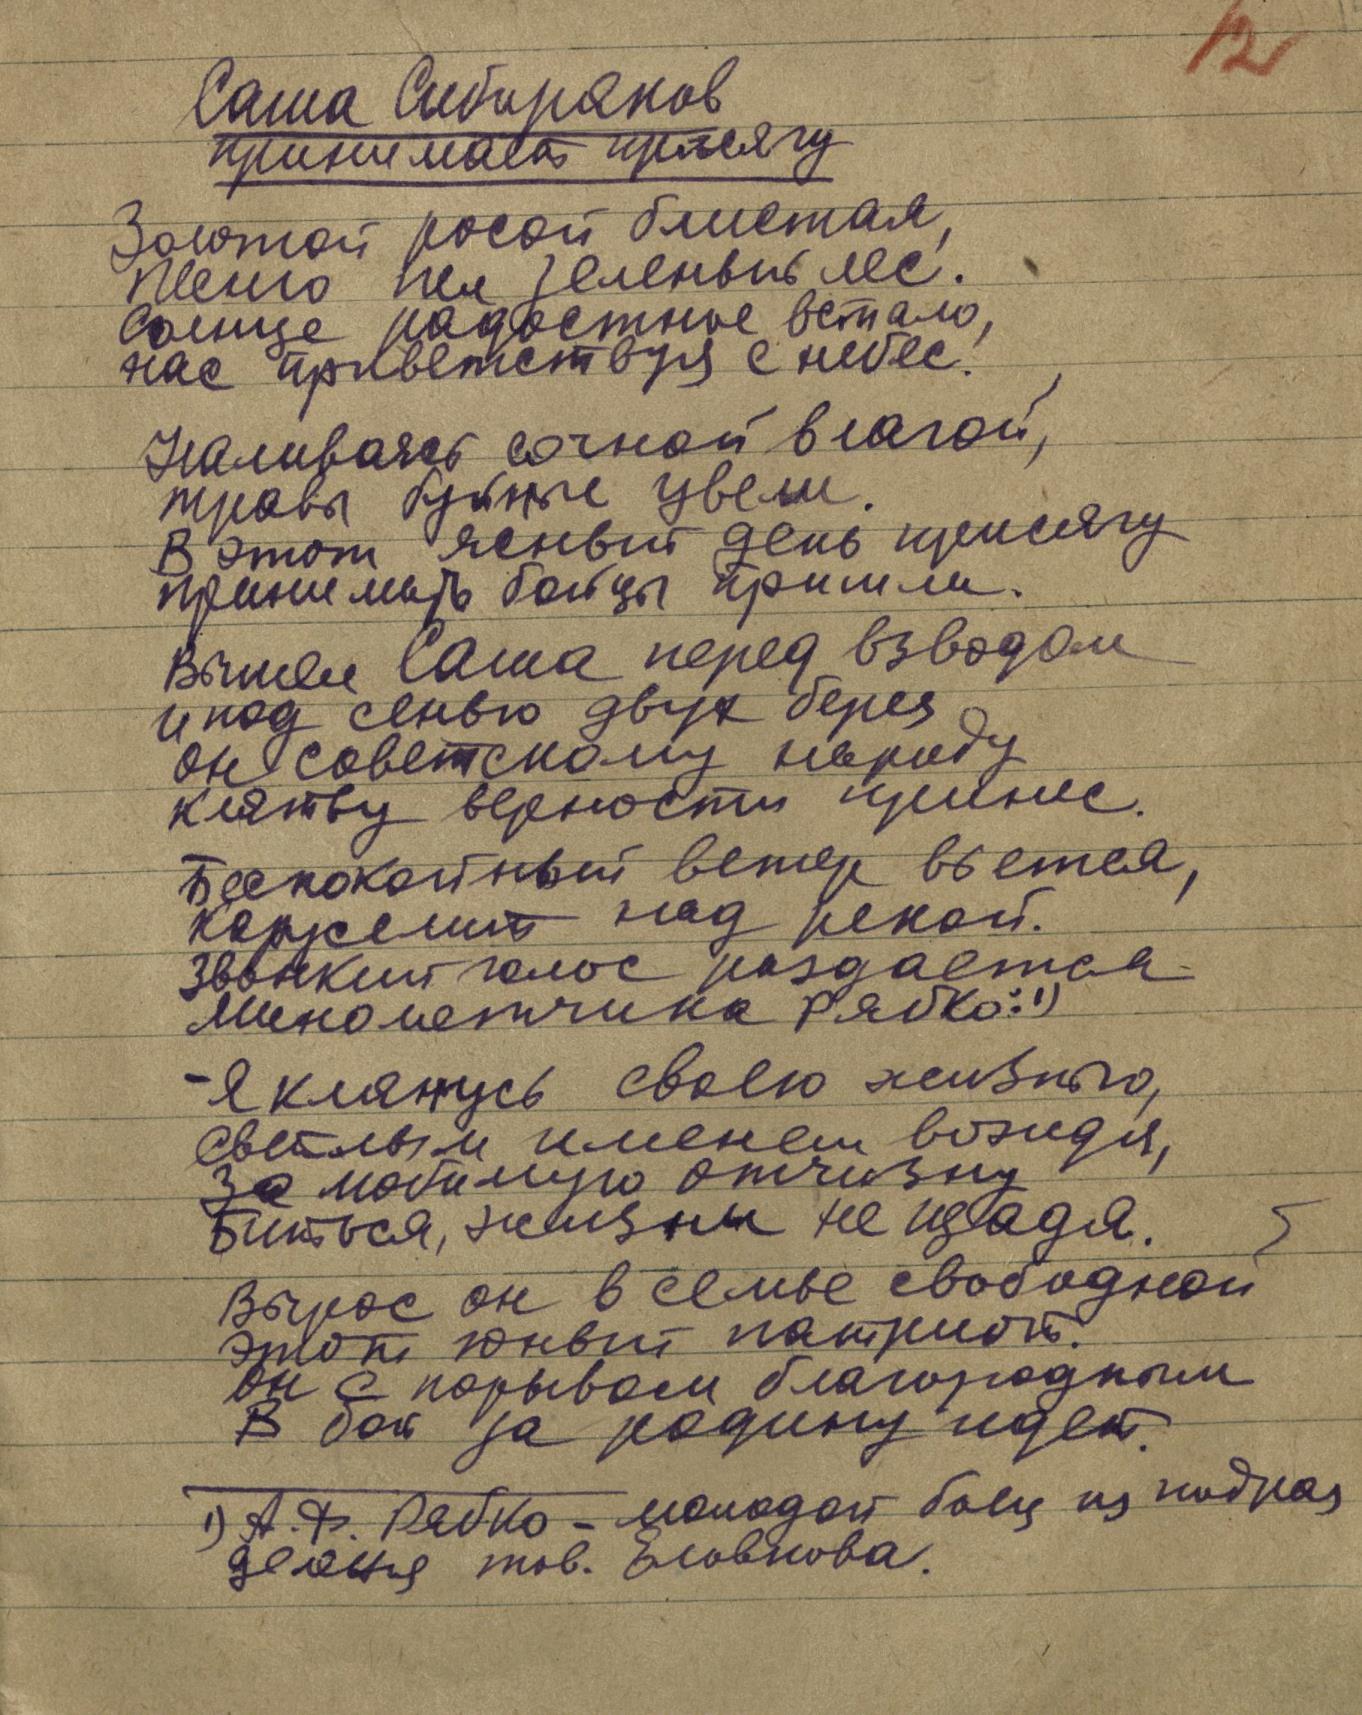 12
Саша Сибиряков
принимает присягу
Золотой росой блистая,
песню пел зеленый лес.
Солнце радостное встало,
нас приветствуя с небес.
Наливаясь сочной влагой,
травы буйные цвели.
В этот ясный день присягу
принимать бойцы пришли.
Вышел Саша перед взводом
и под сенью двух берез
он советскому народу
клятву верности принес.
Беспокойный ветер вьется,
каруселит над рекой.
Звонкий голос раздается
Минометчика Рябко:¹)
- Я клянусь своею жизнью,
светлым именем вождя,
За любимую отчизну
Биться, жизни не щадя.
Вырос он в семье свободной
этот юный патриот.
Он с порывом благородным
В бой за родину идет.
¹) А.Ф. Рябко – молодой боец из подраз
деленья тов. Еловикова.